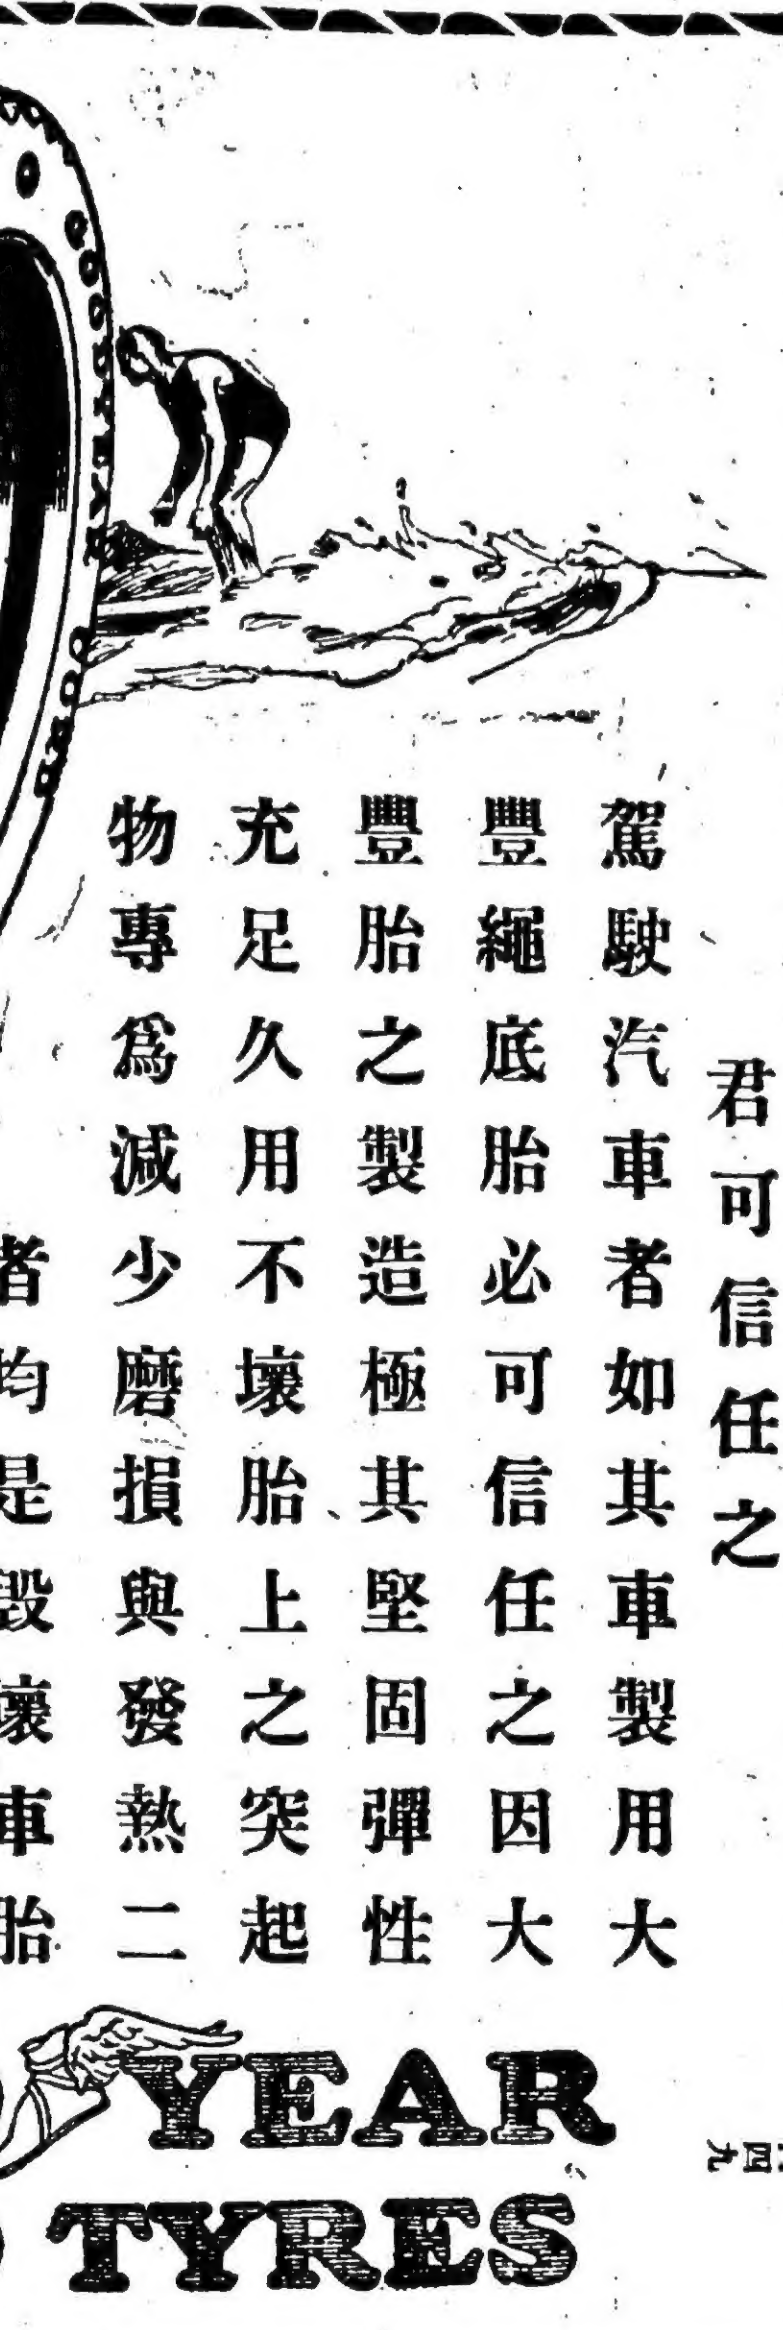 君可信任之
駕駛汽車者如其車製用大
豐繩底胎必可信任之因大
豐胎之製造極其堅固彈性
充足久用不壞胎上之突起
物專為減少磨損與發熱二
者均是毀壞車胎
GOODYEAR
YEAR
TYRES
四九